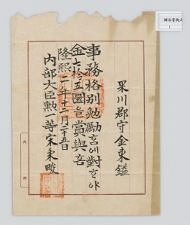 果川郡守金東
事務格別勉勵홈에對ᄒᆞ야
金七拾五圜을賞與홈
隆熙二年十二月二十五日
內部大臣勳一等宋秉畯